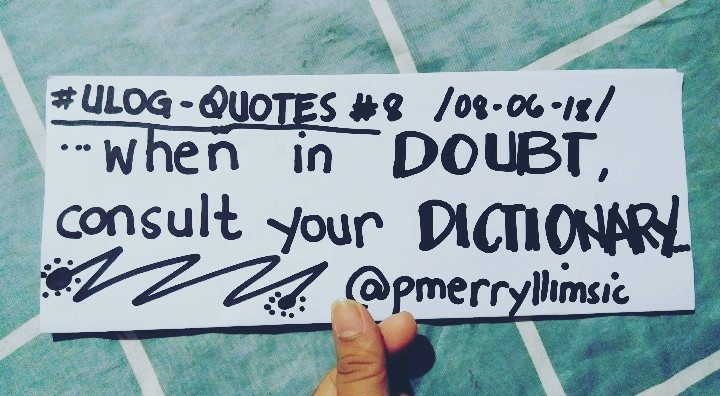 #ULOG-QUOTES #8 /08-06-18/
...when in DOUBT,
consult your DICTIONARY
@pmerryllimsic